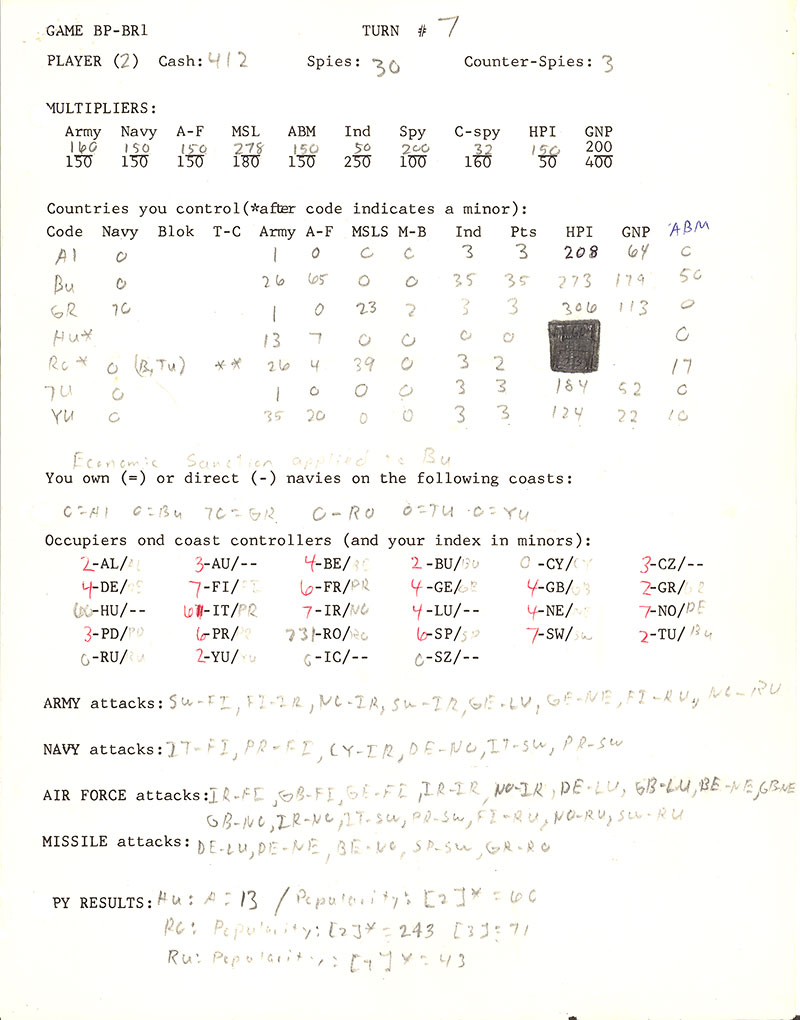 GAME BP-BR1 TURN # 7
PLAYER (2) Cash: 412 Spies: 30 Counter-Spies: 3
MULTIPLIERS:
Army Navy A-F MSL ABM Ind Spy C-spy HPI GNP
160 150 150 278 150 50 200 32 150 200
150 150 150 180 150 250 100 160 50 400
Countries you control(*after code indicates a minor):
Code Navy Blok T-C Army A-F MSLS M-B Ind Pts HPI GNP ABM
Al 0 1 0 0 0 3 3 208 64 0
Bu 0 26 65 0 0 35 35 273 179 50
GR 70 1 0 23 2 3 3 306 113 0
Hu* 13 7 0 0 0 0 0
Ro* 0 (B,Tu) ** 26 4 39 0 3 2 17
TU 0 1 0 0 0 3 3 184 52 0
YU 0 35 20 0 0 3 3 124 22 10
Economic Sanction applied to Bu
You own (=) or direct (-) navies on the following coasts:
0=Al 0=Bu 70=GR 0-RO 0=TU 0=YU
Occupiers ond coast controllers (and your index in minors):
2-AL/ 3-AU/-- 4-BE/ 2-BU/BU 0-CY/CY 3-CZ/--
4-DE/ 7-FI/FI 6-FR/PR 4-GE/GE 4-GB/GB 2-GR/GR
60-HU/-- 6-IT/PR 7-IR/NO 4-LU/-- 4-NE/ 7-NO/DE
3-PD/PD 6-PR/ 231-RO/RO 6-SP/SP 7-SW/SW 2-TU/BU
0-RU/RU 2-YU/YU 0-IC/-- 0-SZ/--
ARMY attacks: SW-FI, FI-IR, NO-IR, SW-IR, GE-LU, GE-NE, FI-RU, NO-RU
NAVY attacks: IT-FI, PR-FI, CY-IR, DE-NO, IT-SW, PR-SW
AIR FORCE attacks: IR-FI, GB-FI, GE-FI, IR-IR, NO-IR, DE-LU, GB-LU, BE-NE, GB-NE
GB-NO, IR-NO, IT-SW, PR-SW, FI-RU, NO-RU, SW-RU
MISSILE attacks: DE-LU, DE-NE, BE-NO, SP-SW, GR-RO
PY RESULTS: Hu: A=13 / Popularity: [2]*=60
Ro: Popularity: [2]*=243 [3]=71
Ru: Popularity: [7]*=43